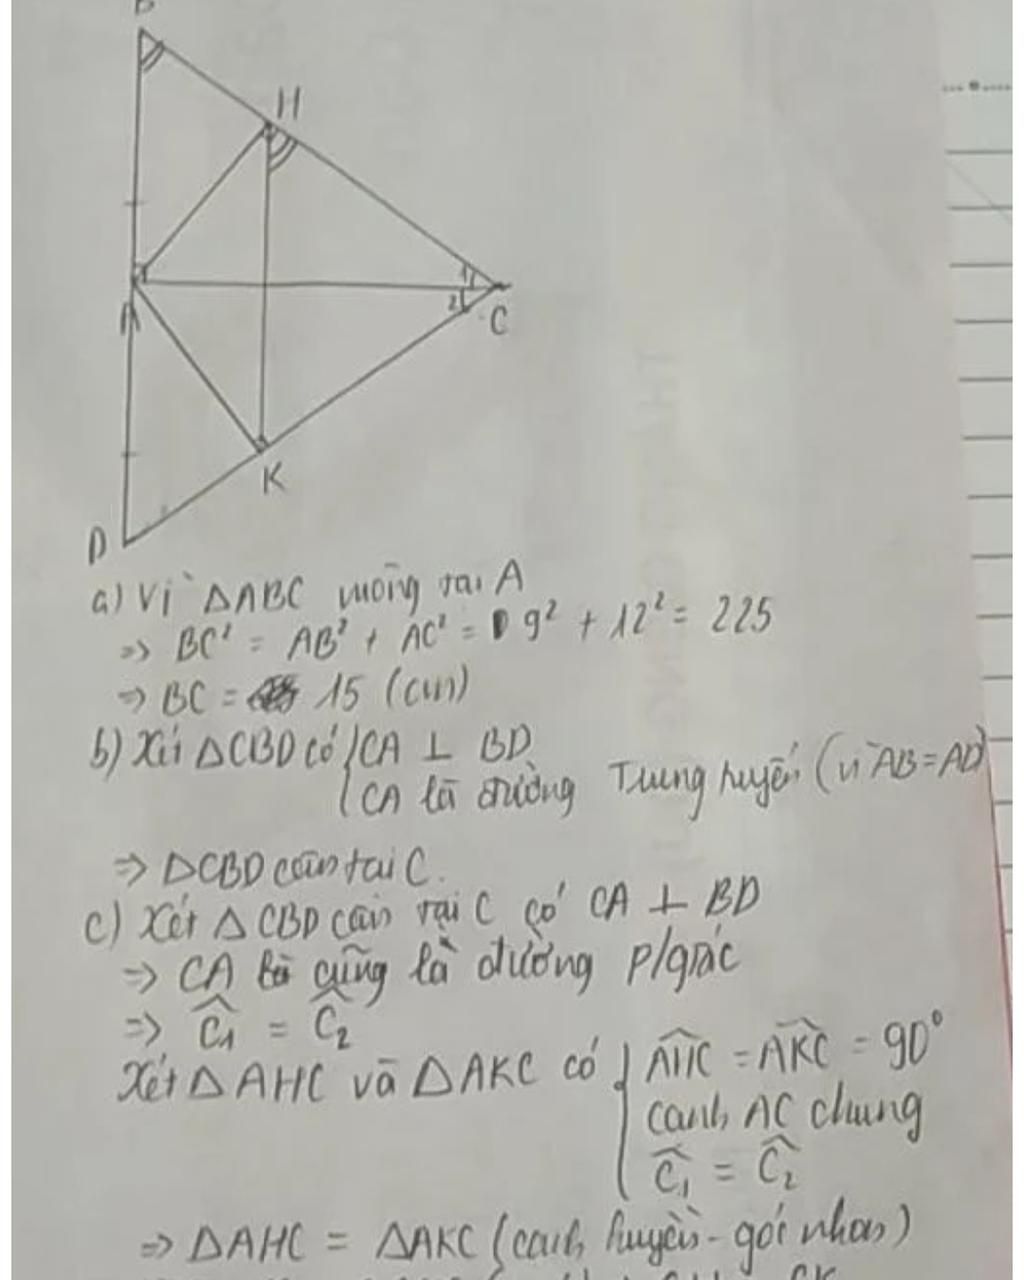 B
H
1
A
1
2
C
K
D
a) Vì ΔABC vuông tại A
=> BC² = AB² + AC² = 9² + 12² = 225
=> BC = 15 (cm)
b) Xét ΔCBD có { CA ⊥ BD
CA là đường Trung tuyến (vì AB = AD)
=> ΔCBD cân tại C.
c) Xét Δ CBD cân tại C có CA ⊥ BD
=> CA cũng là đường p/giác
=> Ĉ₁ = Ĉ₂
Xét Δ AHC và Δ AKC có { AHC = AKC = 90°
cạnh AC chung
Ĉ₁ = Ĉ₂
=> ΔAHC = ΔAKC (cạnh huyền - góc nhọn)